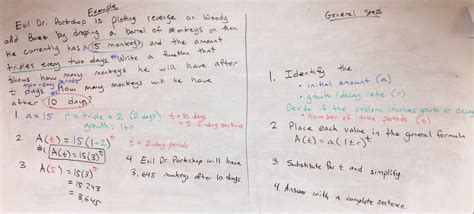 Example
Evil Dr. Porkchop is ploting revenge on Woody
and Buzz by droping a barrel of Monkeys on them.
He currently has 15 monkeys and the amount
triples every two days. Write a function that
shows how many monkeys he will have after
t two-day periods
days. How many monkeys will he have
after 10 days?
1. a = 15 r = triple = 2 (2 days) t = 10 days
growth: 1+r = 5 2-day periods
2 A(t) = 15(1+2)^t t = 2-day periods
#1 A(t) = 15(3)^t
3 A(5) = 15(3)^5
= 15·243
= 3,645
4 Evil Dr. Porkchop will have
3,645 monkeys after 10 days.
General Steps
1. Identify the
• initial amount (a)
• growth/decay rate (r)
Decide if the problem involves growth or decay
• number of time periods (t)
2 Place each value in the general formula
A(t) = a(1±r)^t
3 Substitute for t and simplify.
4 Answer with a complete sentence.